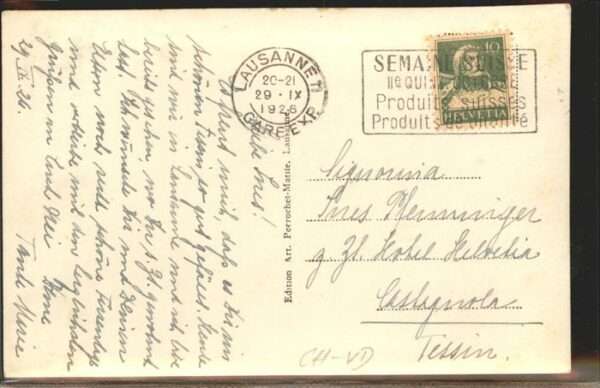 LAUSANNE 1
20-21
29 · IX
1926
GARE EXP.
SEMAINE SUISSE
Produits suisses
Produits de qualité
10
HELVETIA
29. IX. 26.
Liebe Ines!
Es freut mich, dass es Dir im
schönen Tessin so gut gefällt. Heute
sind wir in Lausanne und
bereits gesehen, wo Du s. Zt. gewohnt
hast. Ich wünsche Dir und Deinen
Eltern noch recht schöne Ferientage
und verbleibe mit den herzlichsten
Grüssen an Euch Alle
Deine
Tante Marie
Edition Art. Perrochet-Matile, Lausanne
Signorina
Ines Pfenninger
z. Zt. Hotel Helvetia
Castagnola
Tessin.
(H-VD)